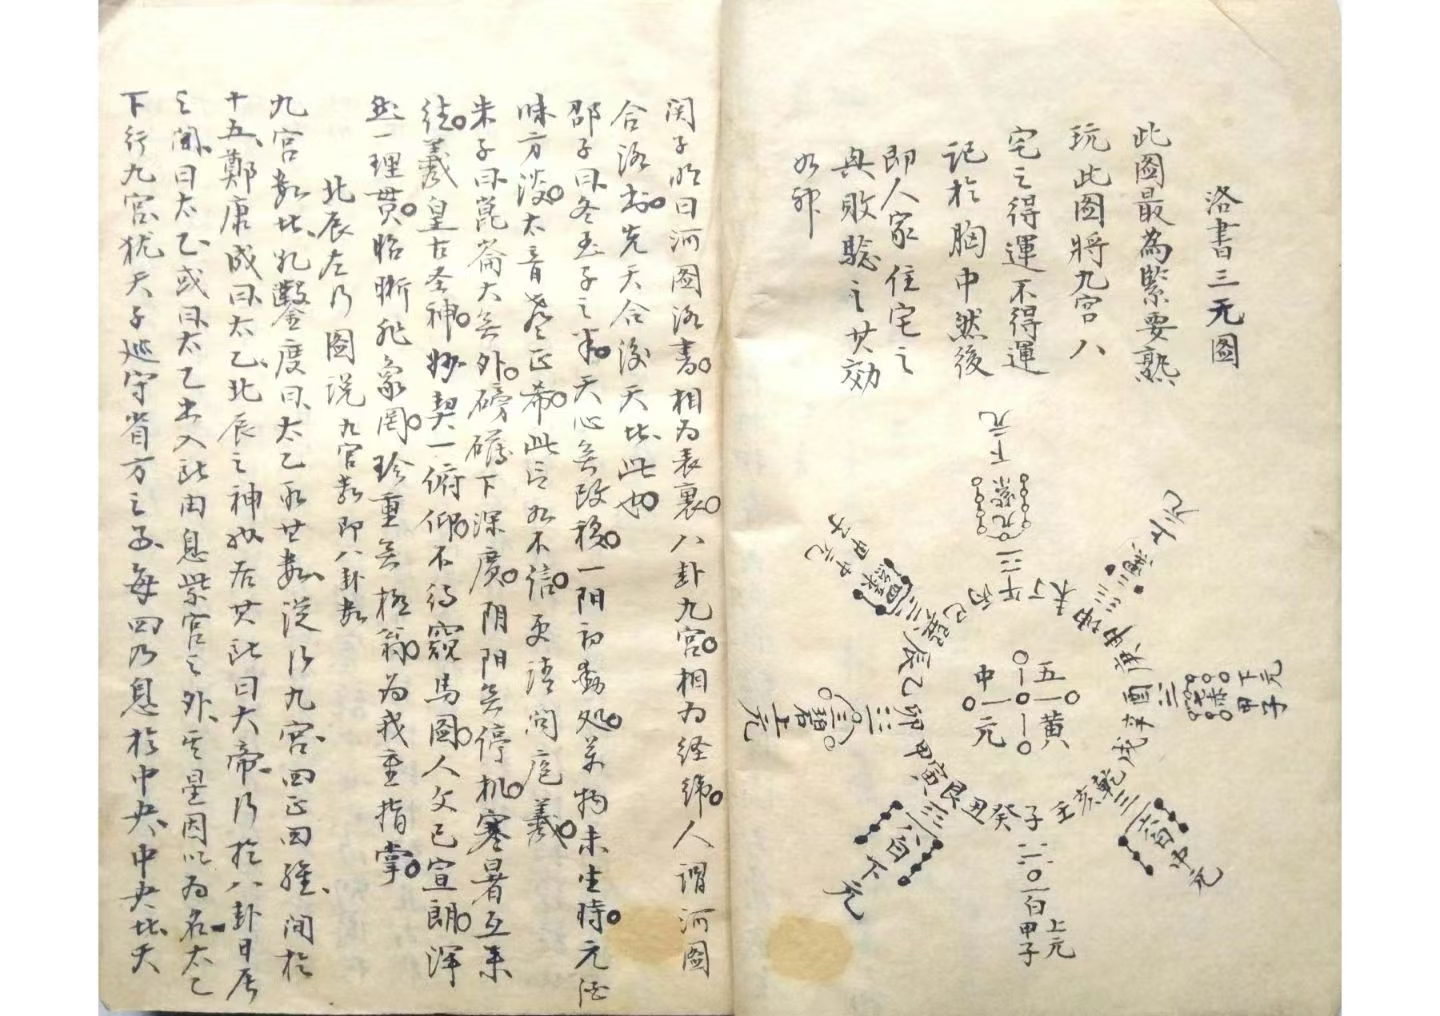 洛書三元圖
此圖最為緊要熟
玩此圖將九宮八
宅之得運不得運
記於胸中然後
即人家住宅之
與敗驗之其効
如神
下元
九紫
丙午丁
未坤申
上元
庚酉辛
七赤
下元
甲子
戌乾亥
六白中元
壬子癸
一白
上元
甲子
丑艮寅
八白
下元
甲卯乙
三碧
上元
辰巽巳
四綠
中元
甲子
五黃
中元
関子明曰河圖洛書相为表裏八卦九宮相为経緯人謂河圖
合洛书先天合後天比此也
邵子曰冬至子之半天心無改移一阳初動処萬物未生時元酒
味方淡太音声正希此言如不信更請問庖羲
朱子曰崑崙大無外磅礴下深廣阴阳無停机寒暑互来
往羲皇古圣神妙契一俯仰不待窺马圖人文已宣朗渾
然一理貫昭晰非象罔珍重無極翁为我重指掌
北辰左乃圖説 九宮数即八卦数
九宮数比乾鑿度曰太乙取其数以行九宮四正四維間於
十五鄭康成曰太乙北辰之神也居其所曰大帝行於八卦日辰
之间曰太乙或曰太乙出入所由息紫宮之外其星因以为名太乙
下行九宮犹天子巡守省方之事每四乃息於中央中央比天